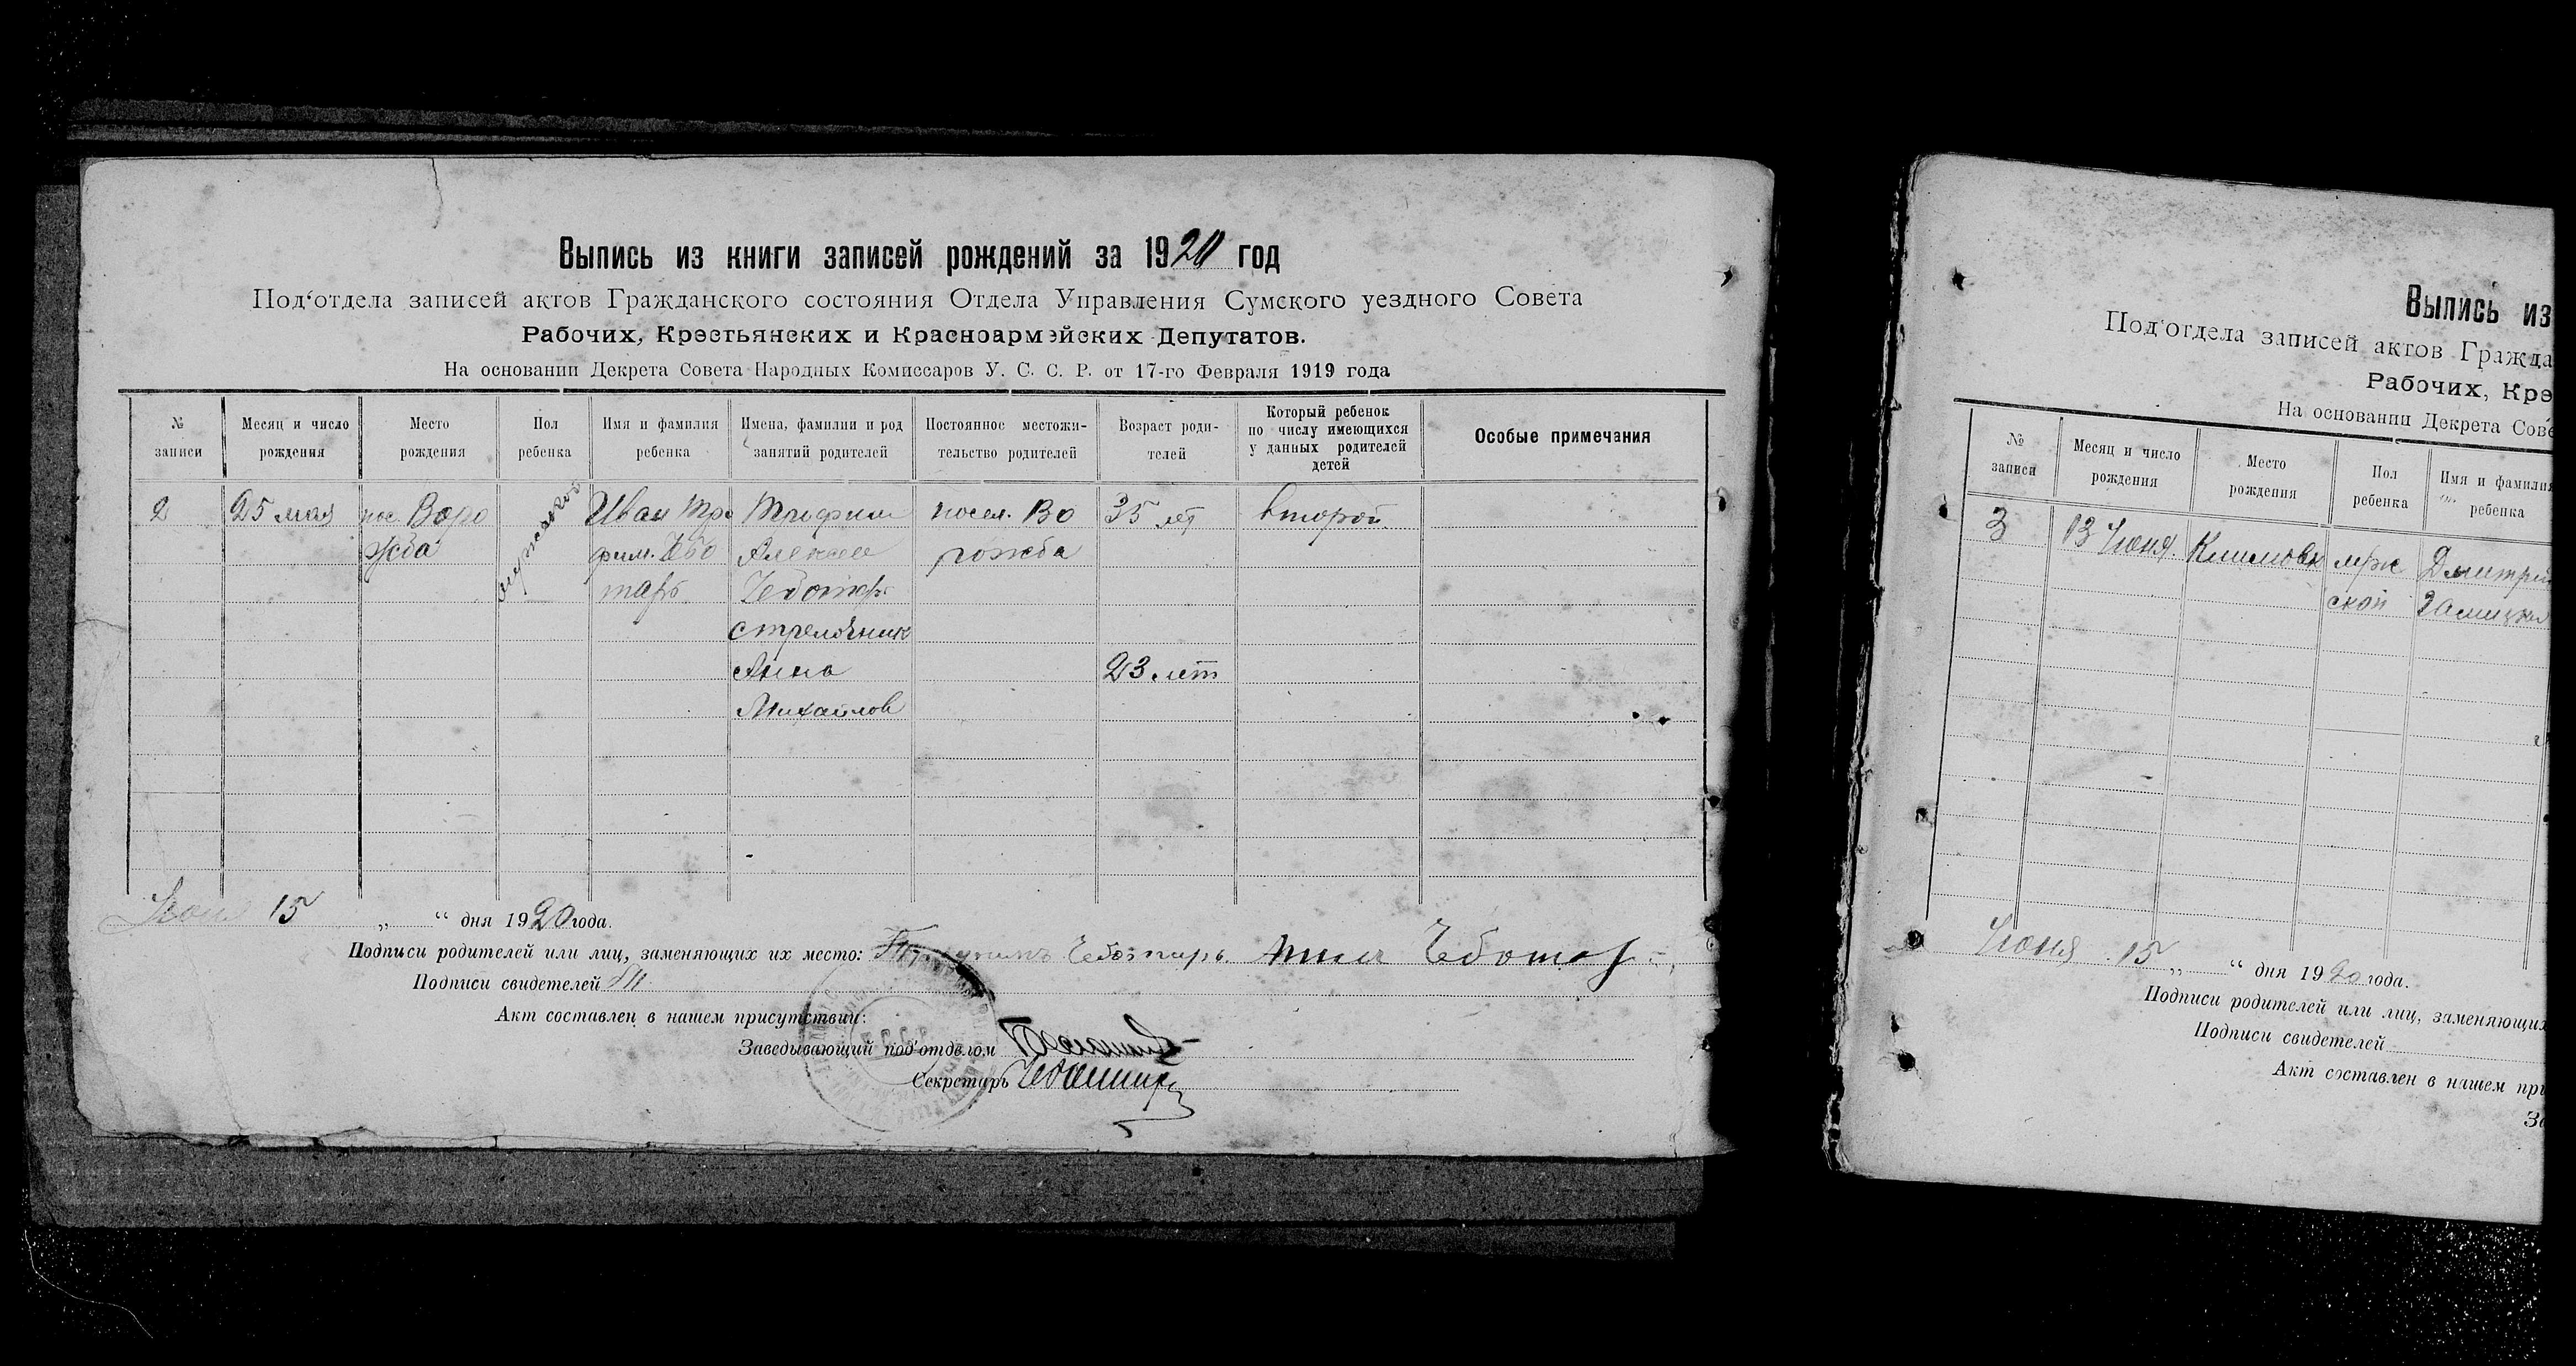 Выпись из книги записей рождений за 1920 год
Под'отдела записей актов Гражданского состояния Отдела Управления Сумского уездного Совета
Рабочих, Крестьянских и Красноармейских Депутатов.
На основании Декрета Совета Народных Комиссаров У. С. С. Р. от 17-го Февраля 1919 года
№ записи
Месяц и число рождения
Место рождения
Пол ребенка
Имя и фамилия ребенка
Имена, фамилии и род занятий родителей
Постоянное местожительство родителей
Возраст родителей
Который ребенок по числу имеющихся у данных родителей детей
Особые примечания
2
25 мая
пос. Воро
жба
мужского
Иван Тро
фим. Чбо
тарь
Трофим
Алексее
Чеботарь
стрелочник
Анна
Михайлов
посел. Во
рожба
35 лет
23 лет
второй
Июня 15 „ “ дня 1920 года.
Подписи родителей или лиц, заменяющих их место: Трофимъ Чеботарь Анна Чбота
Подписи свидетелей
Акт составлен в нашем присутствии:
Заведывающий под'отделом
Секретарь
Выпись из
Под'отдела записей актов Гражда
Рабочих, Кре
На основании Декрета Сове
№ записи
Месяц и число рождения
Место рождения
Пол ребенка
Имя и фамилия ребенка
3
13 Июня.
Климовк
мрж
ской
Дмитрий
Июня 15 „ “ дня 1920 года.
Подписи родителей или лиц, заменяющих
Подписи свидетелей
Акт составлен в нашем при
За